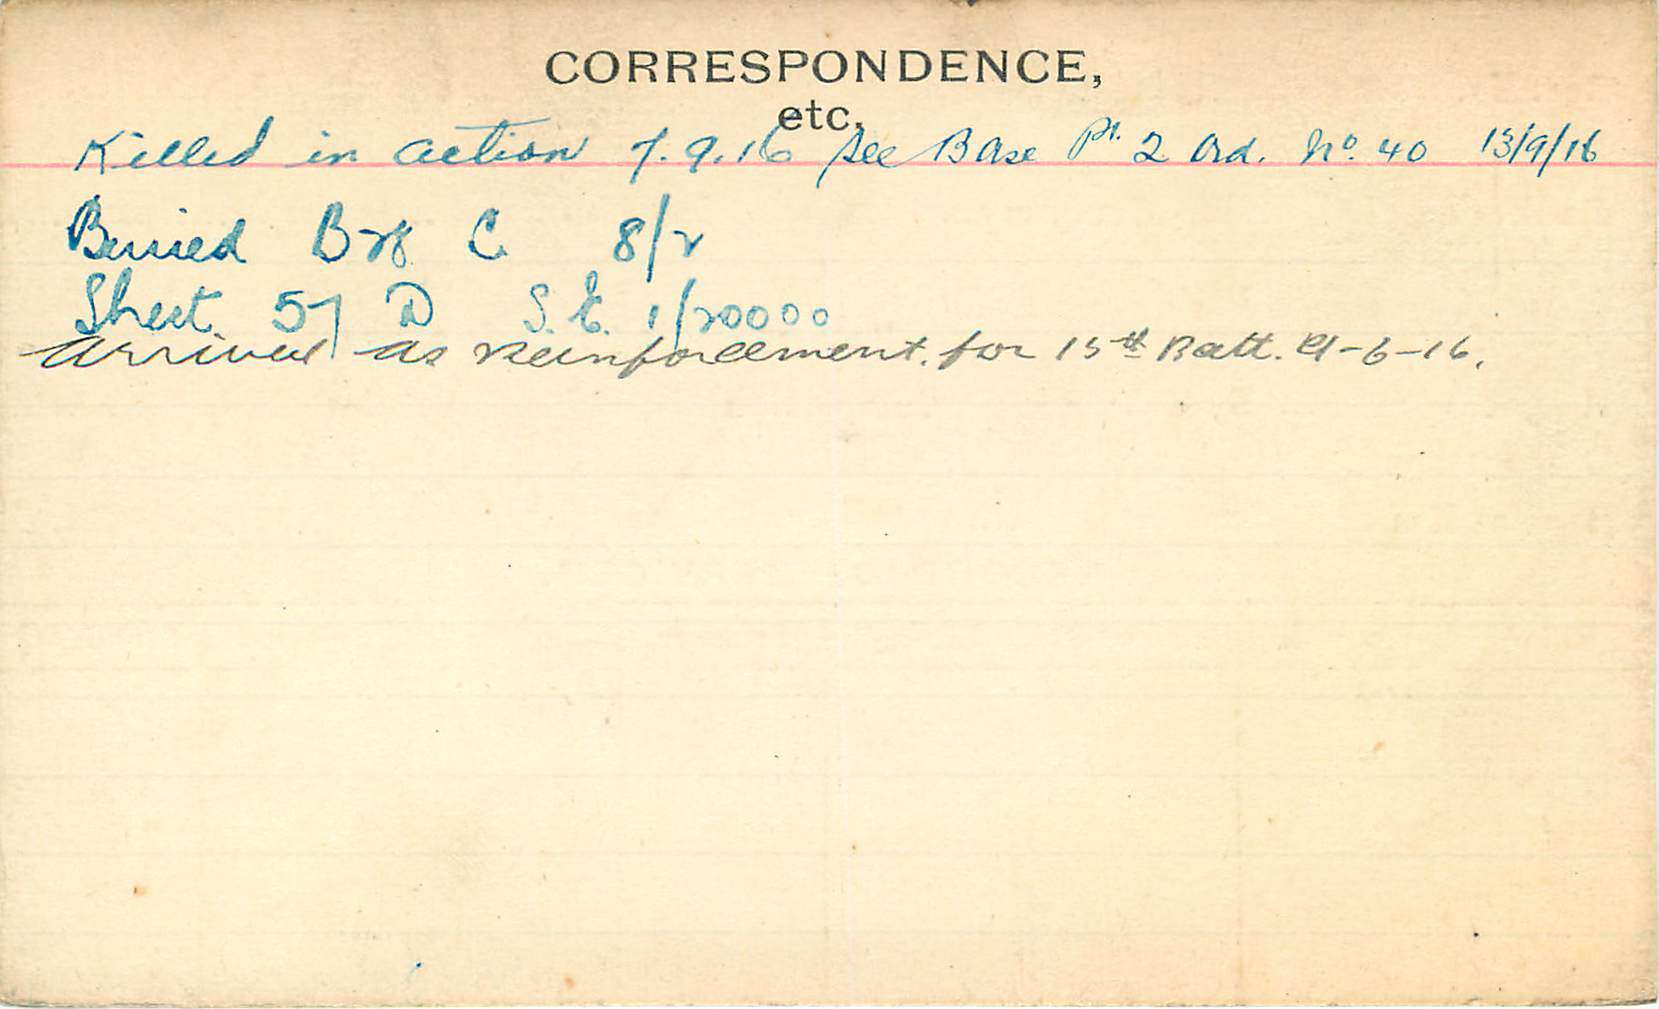 CORRESPONDENCE,
etc.
Killed in action 7.9.16 See Base Pt. 2 Ord. No. 40 13/9/16
Burried C 8/2
Sheet 57 D S.E. 1/20000
Arrived as Reinforcement. for 15th Batt. -6-16.